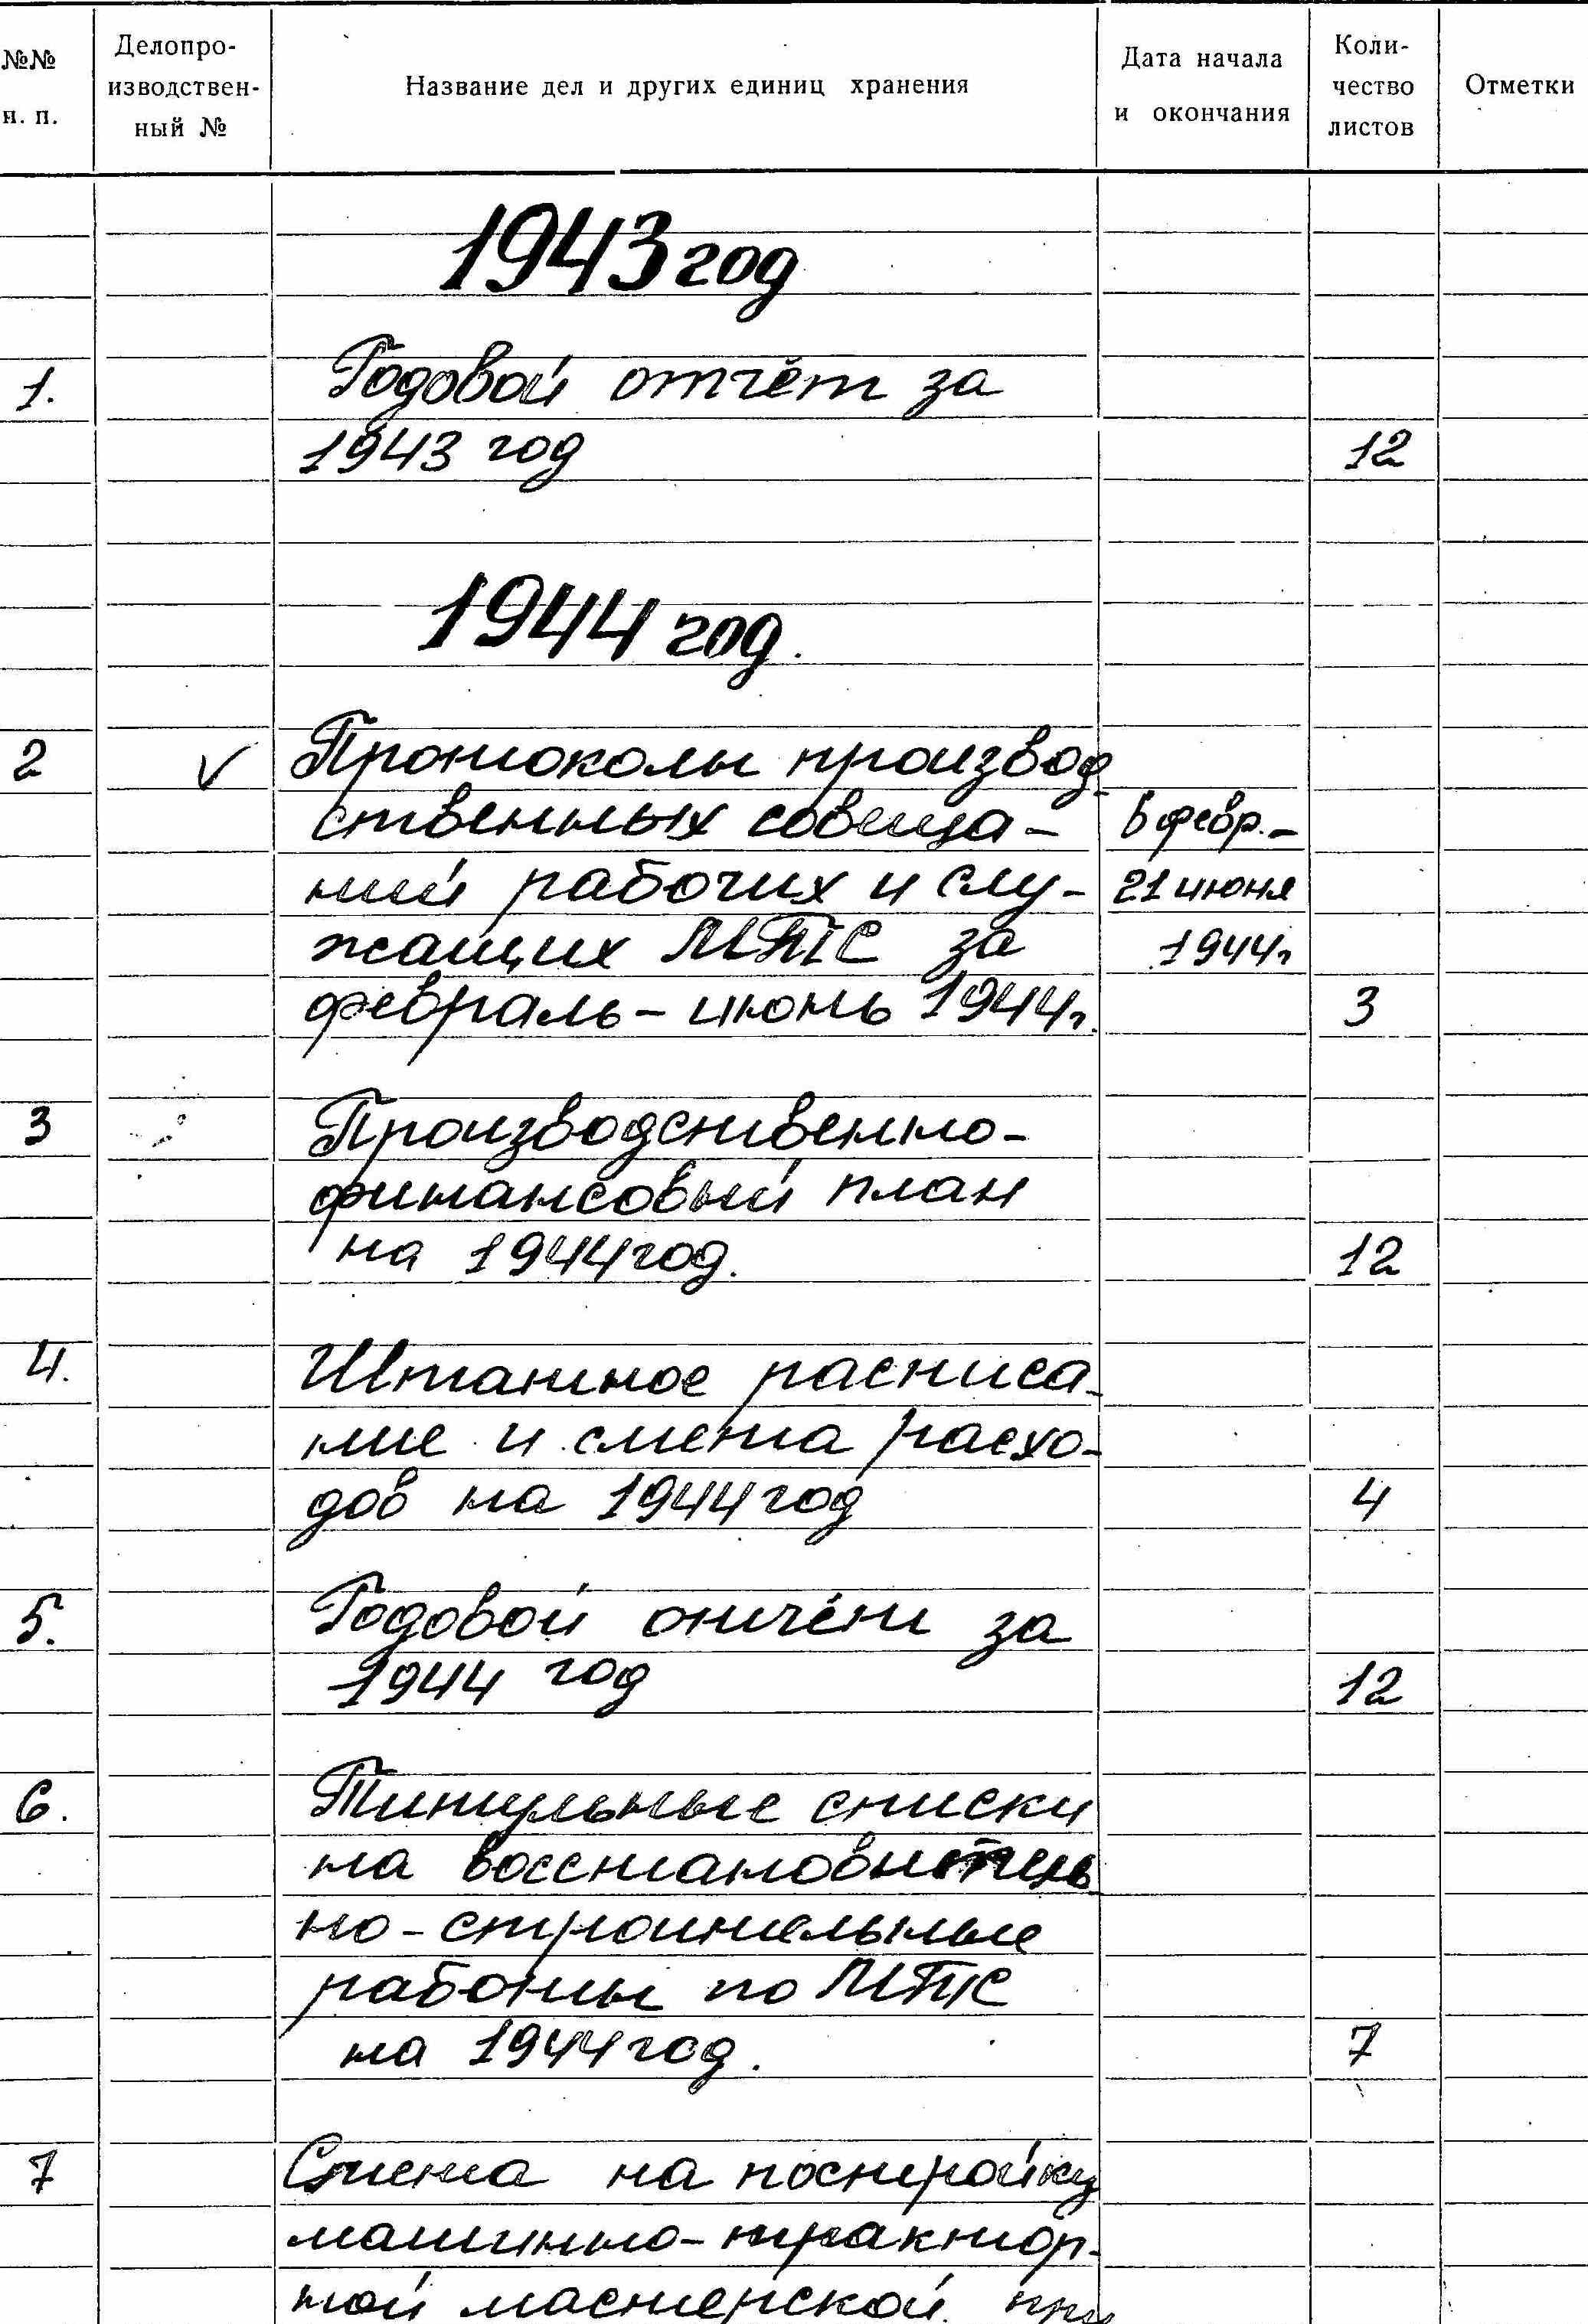 №№ н. п. Делопро-изводствен-ный № Название дел и других единиц хранения Дата начала и окончания Коли-чество листов Отметки
1943 год
1. Годовой отчёт за
1943 год 12
1944 год.
2 √ Протоколы производ-
ственных совеща- 6 февр.-
ний рабочих и слу- 21 июня
жащих МТС за 1944г
февраль-июнь 1944г. 3
3 Производственно-
финансовый план
на 1944 год. 12
4. Штатное расписа-
ние и смета расхо-
дов на 1944 год 4
5. Годовой отчёт за
1944 год 12
6. Титульные списки
на восстановитель
но-строительные
работы по МТС
на 1944 год. 7
7 Смета на постройку
машинно-трактор-
ной мастерской при